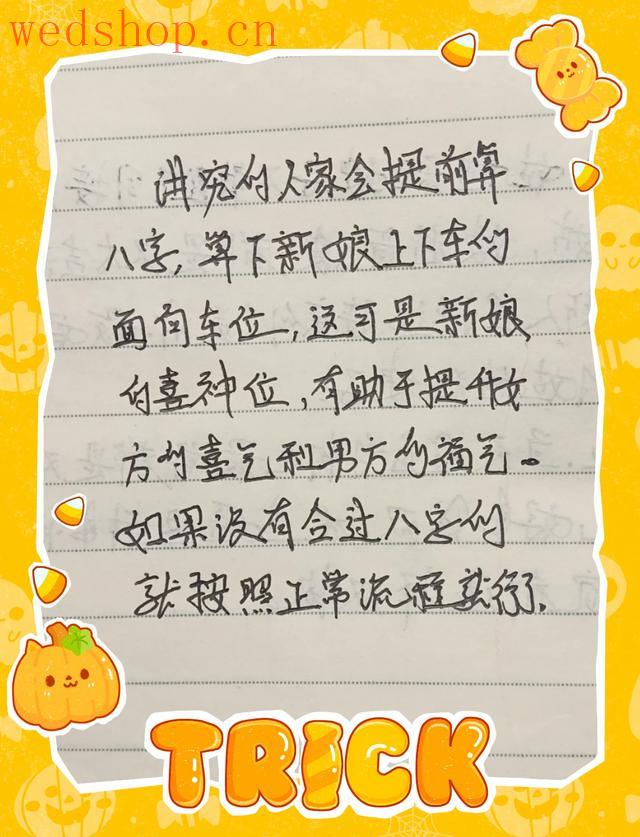 wedshop.cn
讲究的人家会提前算
八字,算下新娘上下车的
面向车位,这可是新娘
的喜神位,有助于提升女
方的喜气和男方的福气。
如果没有合过八字的
就按照正常流程就行了.
TRICK